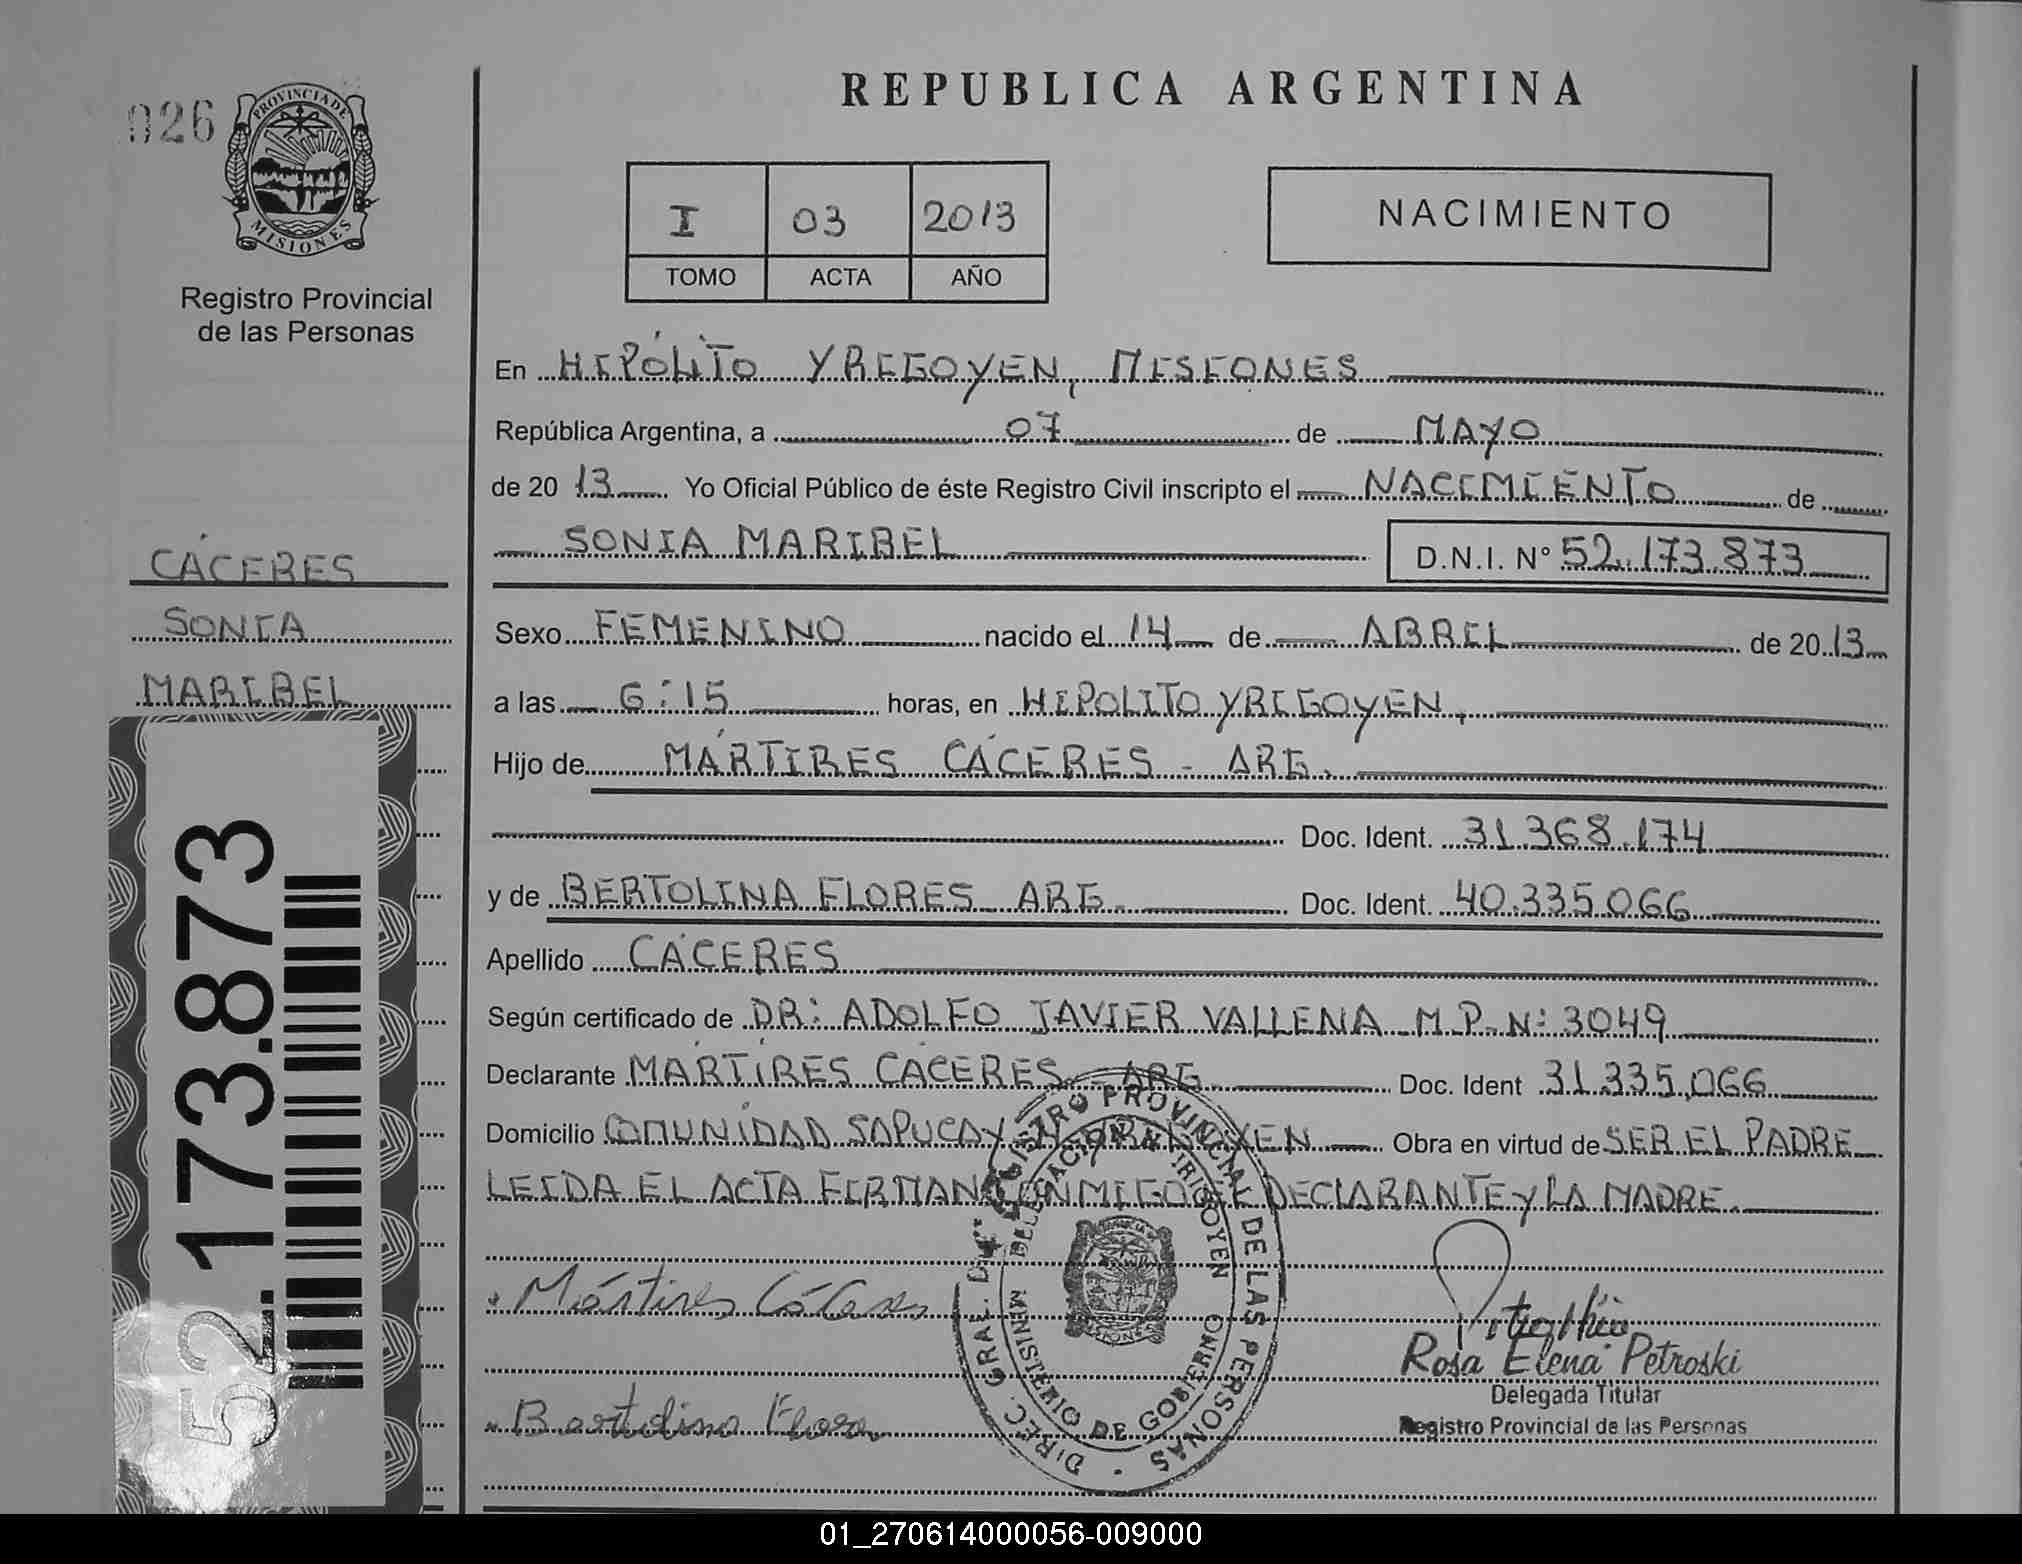 026
PROVINCIA DE
MISIONES
Registro Provincial
de las Personas
REPUBLICA ARGENTINA
I 03 2013
TOMO ACTA AÑO
NACIMIENTO
En HIPÓLITO YRIGOYEN, MISIONES
República Argentina, a 07 de MAYO
de 20 13 Yo Oficial Público de éste Registro Civil inscripto el NACIMIENTO de
SONIA MARIBEL D.N.I. N° 52.173.873
CÁCERES
SONIA
MARIBEL
Sexo FEMENINO nacido el 14 de ABRIL de 20 13
a las 6:15 horas, en HIPOLITO YRIGOYEN,
Hijo de MÁRTIRES CÁCERES - ARG.
Doc. Ident. 31.368.174
y de BERTOLINA FLORES - ARG. Doc. Ident. 40.335.066
Apellido CÁCERES
Según certificado de DR: ADOLFO JAVIER VALLENA M.P. N: 3049
Declarante MÁRTIRES CÁCERES - ARG. Doc. Ident 31.335.066
Domicilio COMUNIDAD SAPUCAY Obra en virtud de SER EL PADRE
LEIDA EL ACTA FIRMAN CONMIGO EL DECLARANTE y LA MADRE.
Mártires Cáceres
Bertolina Flores
DIREC. GRAL. DEL REGISTRO PROVINCIAL DE LAS PERSONAS
DELEGACION H. IRIGOYEN
MINISTERIO DE GOBIERNO
Rosa Elena Petroski
Delegada Titular
Registro Provincial de las Personas
52.173.873
01_270614000056-009000